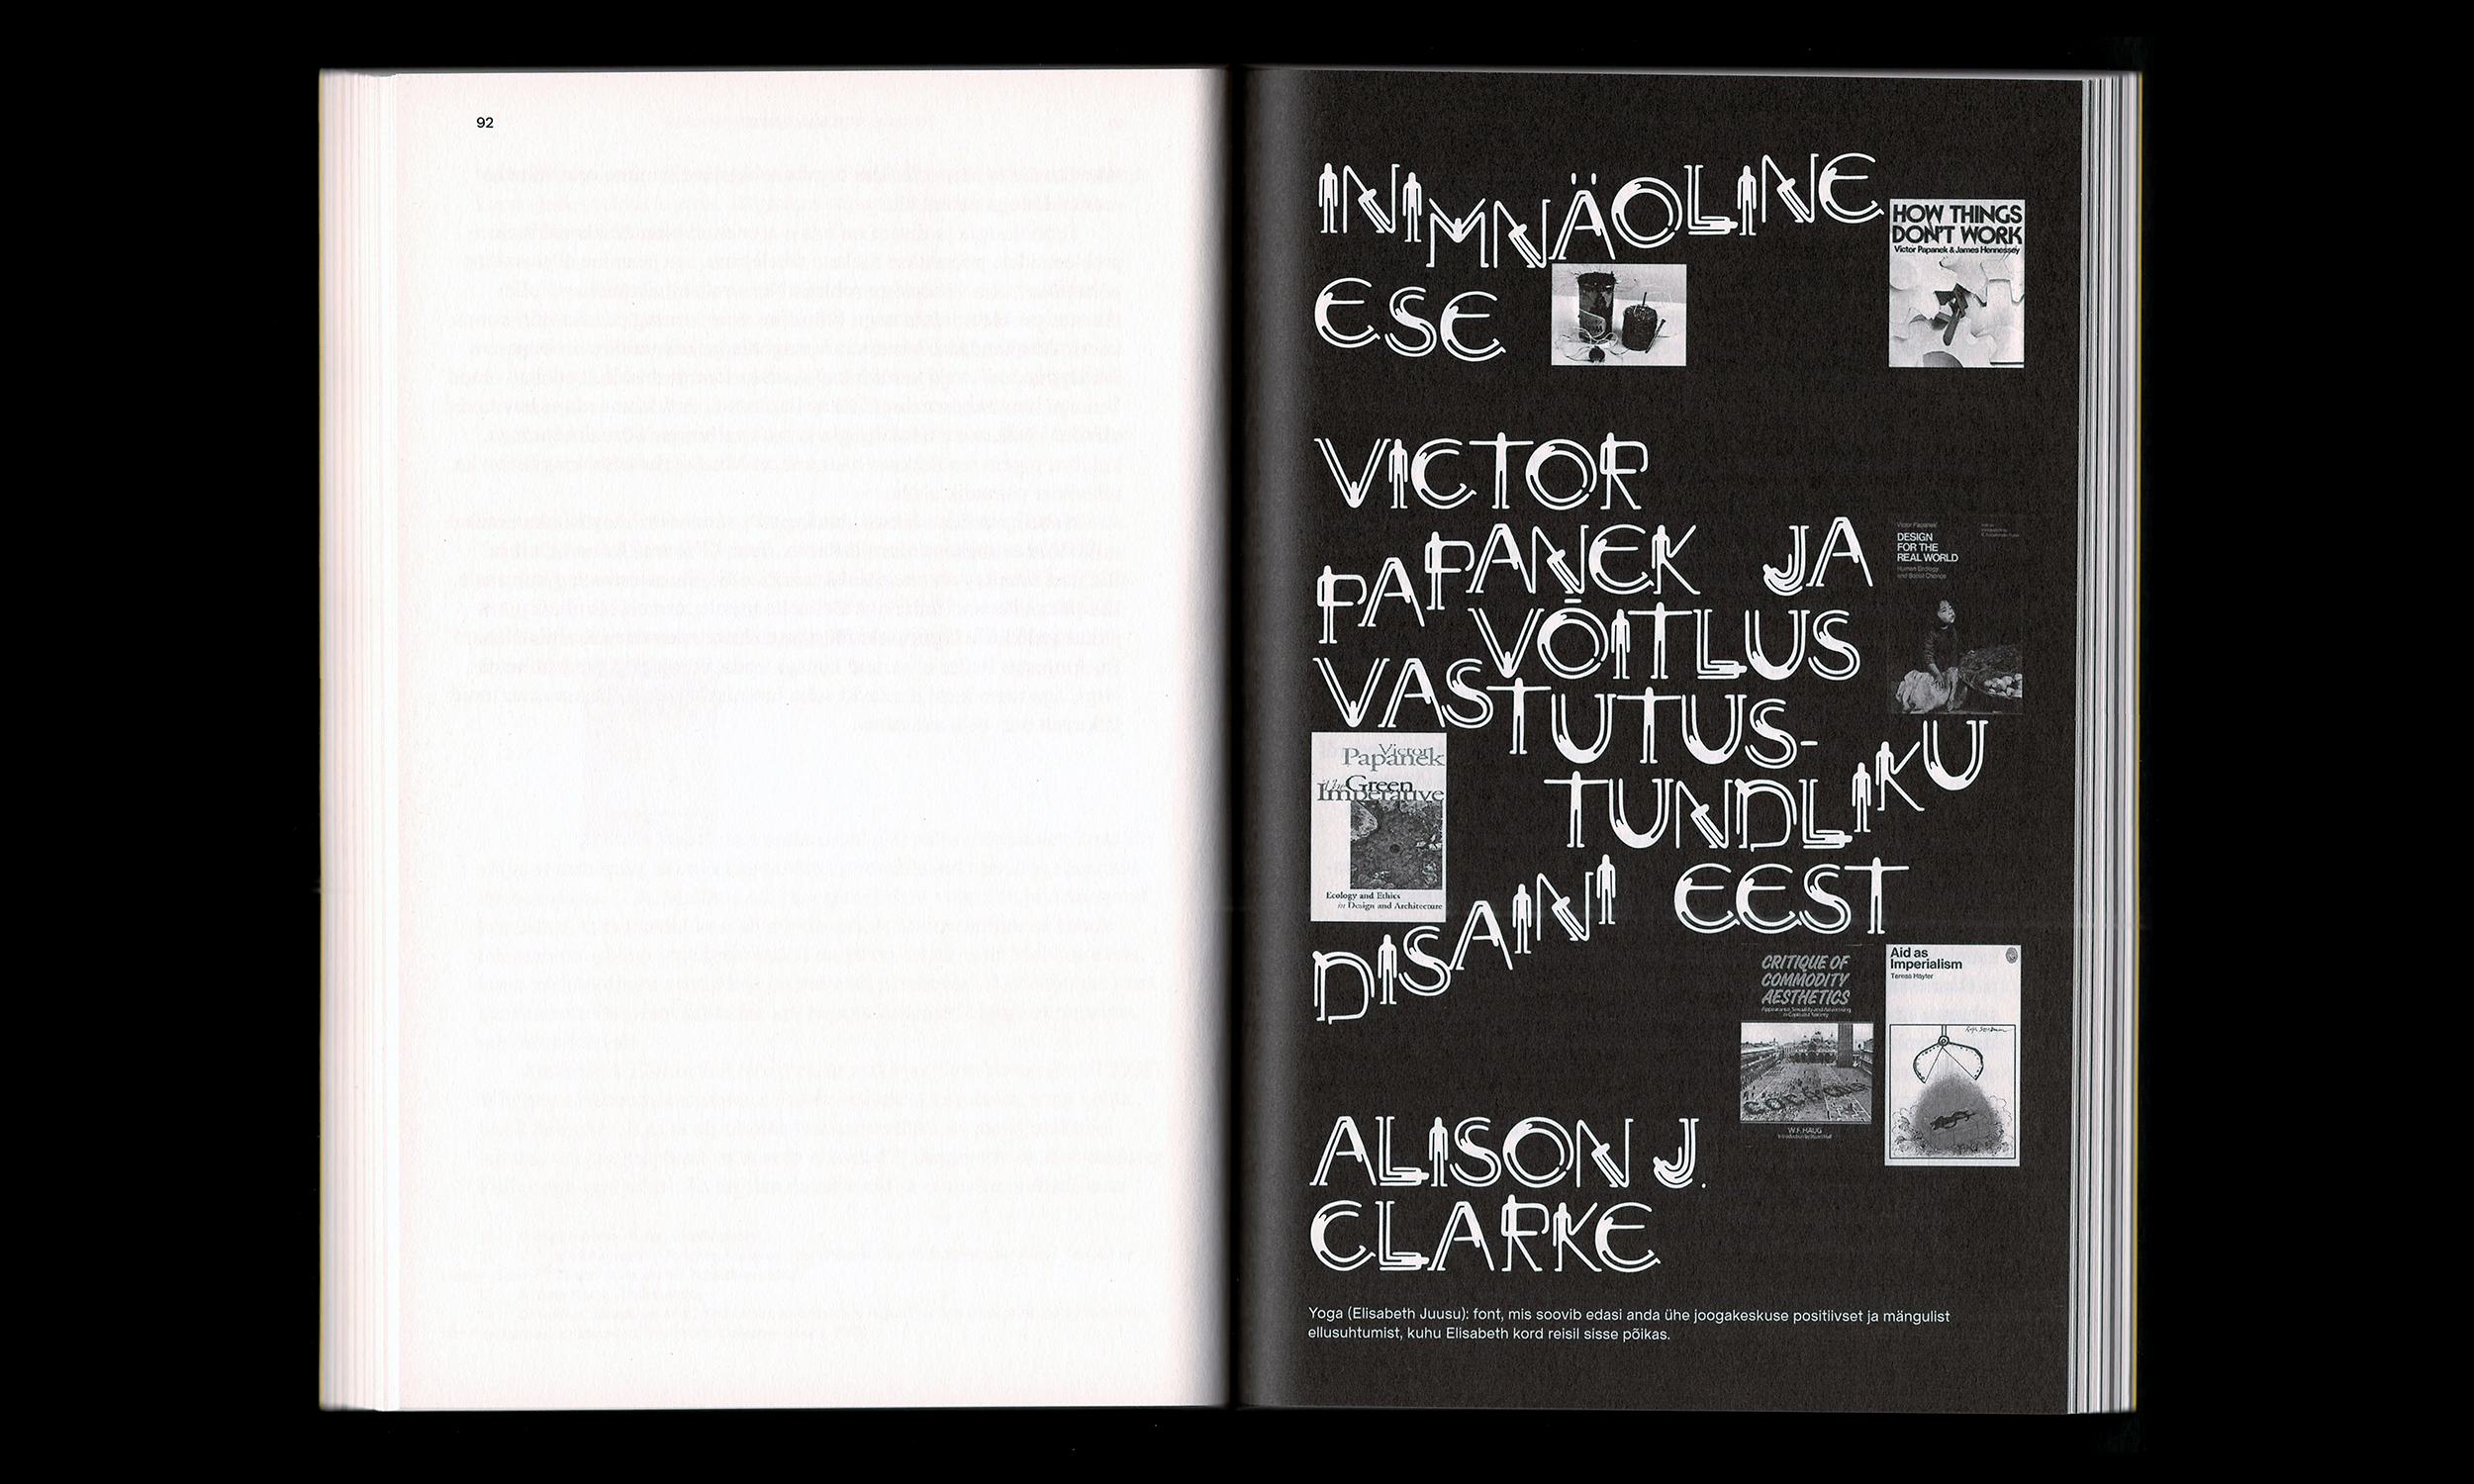 92
INIMNÄOLINE
ESE
HOW THINGS
DON'T WORK
Victor Papanek & James Hennessey
VICTOR
PAPANEK JA
VÕITLUS
VASTUTUS-
TUNDLIKU
DISAINI EEST
Victor Papanek
DESIGN
FOR THE
REAL WORLD
Human Ecology
and Social Change
Victor
Papanek
The Green
Imperative
Ecology and Ethics
in Design and Architecture
CRITIQUE OF
COMMODITY
AESTHETICS
Appearance, Sexuality and Advertising
in Capitalist Society
W.F. HAUG
Introduction by Stuart Hall
Aid as
Imperialism
Teresa Hayter
ALISON J.
CLARKE
Yoga (Elisabeth Juusu): font, mis soovib edasi anda ühe joogakeskuse positiivset ja mängulist
ellusuhtumist, kuhu Elisabeth kord reisil sisse põikas.